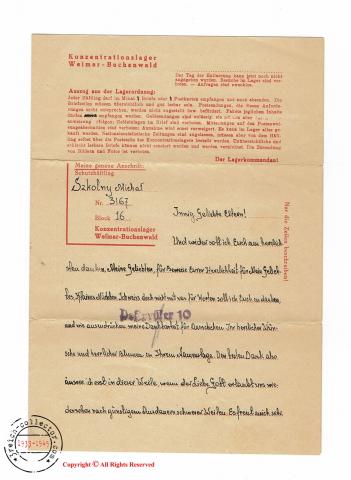 Konzentrationslager
Weimar-Buchenwald
Der Tag der Entlassung kann jetzt noch nicht
angegeben werden. Besuche im Lager sind ver-
boten. — Anfragen sind zwecklos.
Auszug aus der Lagerordnung:
Jeder Häftling darf im Monat Briefe oder Postkarten empfangen und auch absenden. Die
Briefzeilen müssen übersichtlich und gut lesbar sein. Postsendungen, die diesen Anforde-
rungen nicht entsprechen, werden nicht zugestellt bzw. befördert. Pakete jeglichen Inhalts
dürfen nicht empfangen werden. Geldsendungen sind zulässig
im Brief sind verboten. Mitteilungen auf den Postanwei-
sungsabschnitten sind verboten. Annahme wird sonst verweigert. Es kann im Lager alles ge-
kauft werden. Nationalsozialistische Zeitungen sind zugelassen, müssen aber von dem Häft-
ling selbst über die Poststelle des Konzentrationslagers bestellt werden. Unübersichtliche und
schlecht lesbare Briefe können nicht zensiert werden und werden vernichtet. Die Zusendung
von Bildern und Fotos ist verboten.
Der Lagerkommandant!
Meine genaue Anschrift:
Schutzhäftling
Szkolny Michał
Nr. 3167
Block 16
Konzentrationslager
Weimar-Buchenwald
Nur die Zeilen beschreiben!
Innig Geliebte Eltern!
Und wieder soll ich Euch am herzlich
sten danken, Meine Geliebten, für Beweise Eurer Herzlichkeit für Mein Gelieb
tes
und wie ausdrücken meine Dankbarkeit für
10
sche und herrlicher Blumen zu Ihrem Namenstage. Den besten Dank also
unsere in dieser Weile, wann der Liebe Gott erlaubt uns wie
dersehen nach günstigem schwerer Weilen. Es freut mich sehr
3reich-collector.com
1933-1945
Copyright © All Rights Reserved